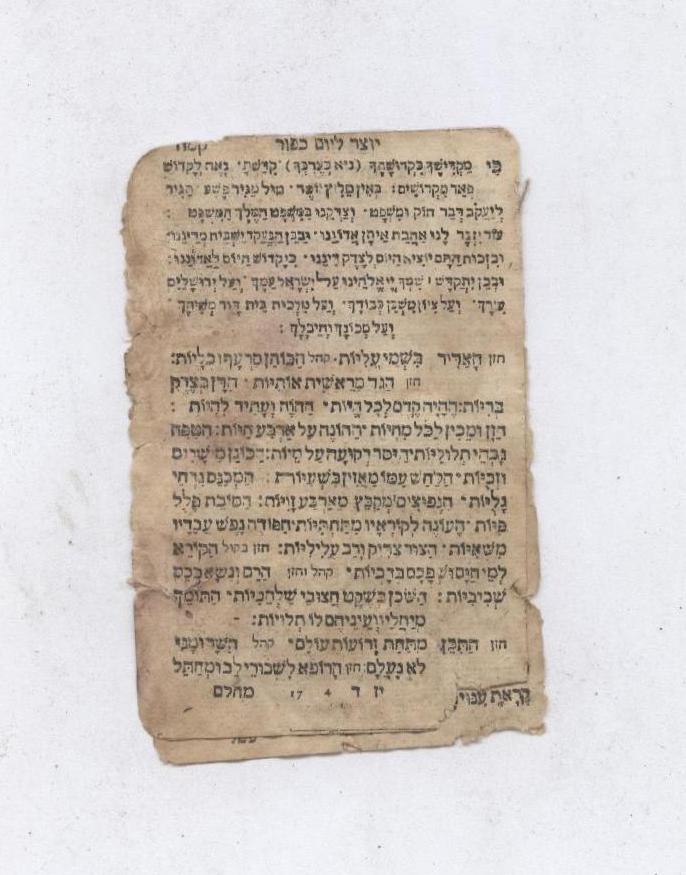 יוצר ליום כפור קמה
כי מקדישך בקדושתך (נ״א כערכך) קדשת׳ נאה לקדוש
פאר מקדושים: באין מליץ יושר׳ מול מגיד פשע׳ תגיד
ליעקב דבר חוק ומשפט׳ וצדקנו במשפט המלך המשפט:
עוד יזכר לנו אהבת איתן אדוננו׳ ובבן הנעקד ישבית מדיננו׳
ובזכות התם יוציא היום לצדק דיננו׳ כי קדוש היום לאדוננו:
ובכן יתקדש שמך יי אלהינו על ישראל עמך׳ ועל ירושלים
עירך׳ ועל ציון משכן כבודך׳ ועל מלכות בית דוד משיחך׳
ועל מכונך והיכלך:
חזן האדיר בשמי עליות׳ קהל הבוחן סרעף וכליות:
חזן הגד מראשית אותיות׳ הדן בצדק
בריות: ההיה קדם לכל היות׳ ההוה ועתיד להיות:
הזן ומכין לכל מחיות׳ החונה על ארבע חיות: הטפח
גבהי תלוליות׳ הסר רקועה על מיות: הכונן מישרים
וזכיות׳ הלחש עמו מאזין בשעיות׳ המכנס נדחי
גליות׳ הנפוצים מקבץ מארבע זויות: הסוכת פלל
פיות׳ העונה לקוראיו מתחתיות׳ הפודה נפש עבדיו
משאיות׳ הצור צדיק ורב עליליות: חזן בקול הקורא
למי הים ושפכם בדכיות׳ קהל וחזן הרם ונשא בכס
שביביות: השוכן בשקט חצובי שלהביות׳ התומך
מיחליו ועיניהם לו תלויות:
חזן התכן מתחת זרועות עולם׳ קהל השד ומני
לא נעלם: חזן הרופא לשבורי לב ומחתל
יז ד 4 17 מחלם
קראת ענוי